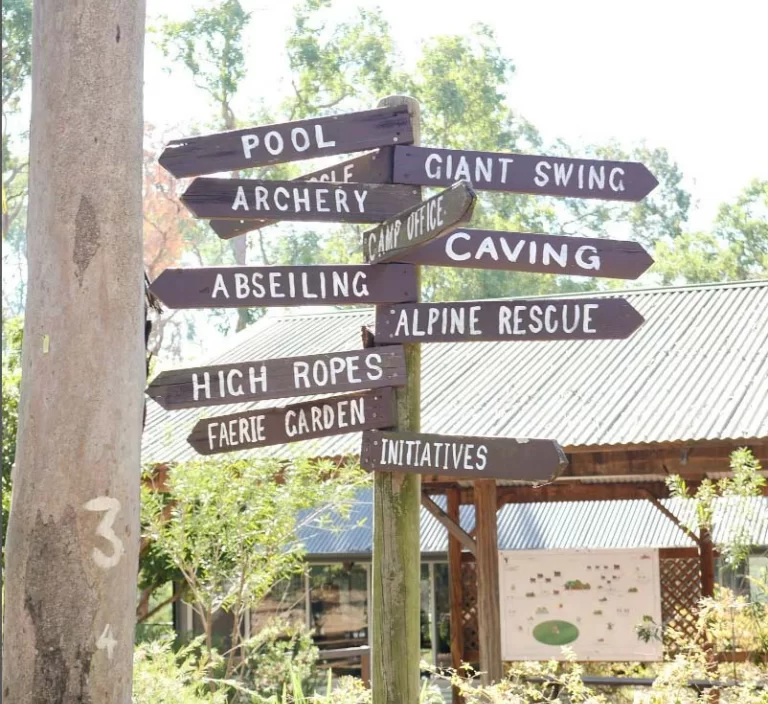 POOL
GIANT SWING
ARCHERY
CAMP OFFICE
CAVING
ABSEILING
ALPINE RESCUE
HIGH ROPES
FAERIE GARDEN
INITIATIVES
3
4